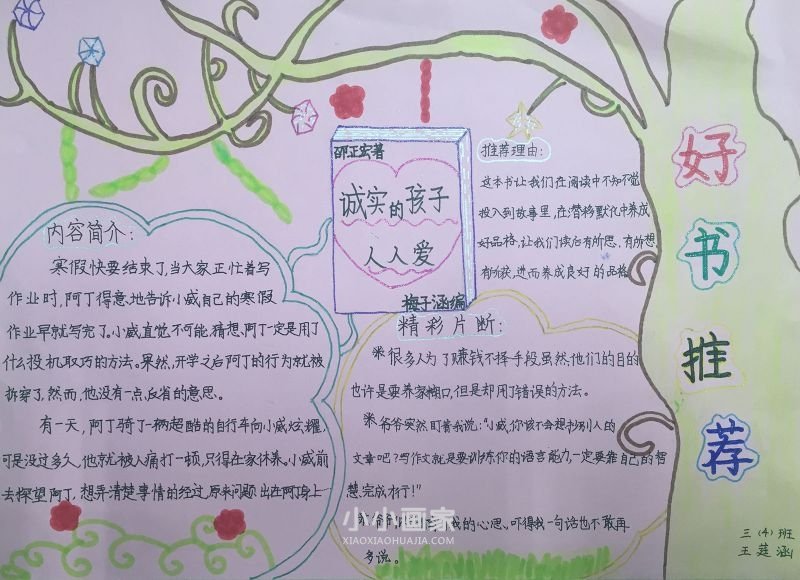 好
书
推
荐
邵正宏著
诚实的孩子
人人爱
梅子涵编
推荐理由：
这本书让我们在阅读中不知不觉
投入到故事里，在潜移默化中养成
好品格，让我们读后有所思、有所想、
有所获，进而养成良好的品格
内容简介：
寒假快要结束了，当大家正忙着写
作业时，阿丁得意地告诉小威自己的寒假
作业早就写完了。小威直觉不可能，猜想，阿丁一定是用了
什么投机取巧的方法。果然，开学之后阿丁的行为就被
拆穿了，然而，他没有一点反省的意思。
有一天，阿丁骑了一辆超酷的自行车向小威炫耀，
可是没过多久，他就被人痛打一顿，只得在家休养。小威前
去探望阿丁，想弄清楚事情的经过，原来问题出在阿丁身上
精彩片断：
*很多人为了赚钱不择手段，虽然，他们的目的
也许是要养家糊口，但是却用了错误的方法。
*爷爷突然盯着我说："小威，你该不会想抄别人的
文章吧？写作文就是要训练你的语言能力，一定要靠自己的智
慧完成才行！"
我的心思、吓得我一句话也不敢再
多说。
小小画家
XIAOXIAOHUAJIA.COM
三（4）班
王莛涵